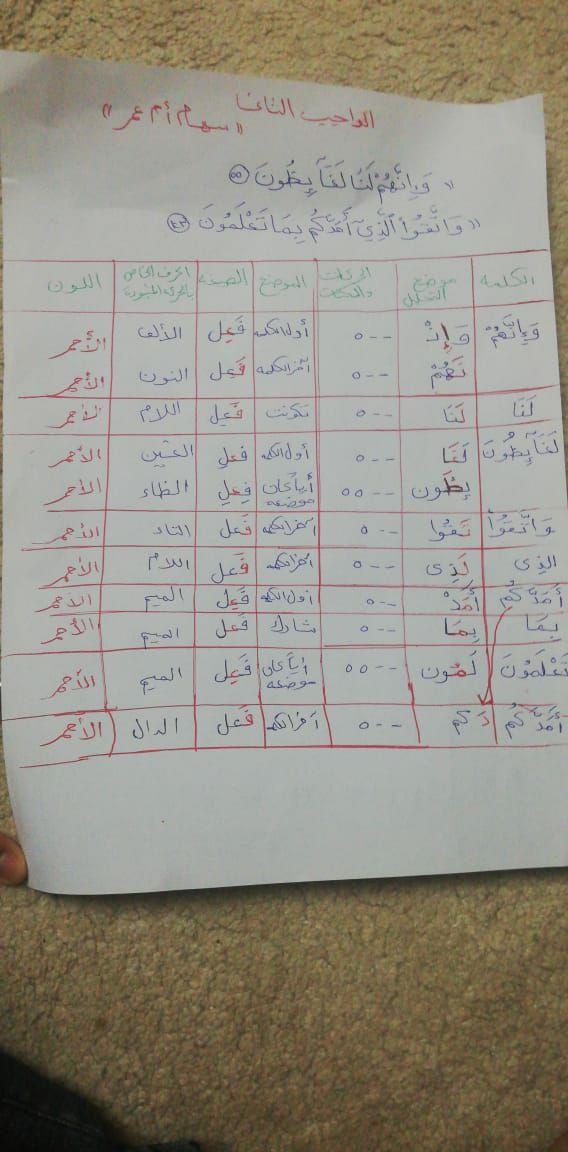 الواجب الثانى
« سهام أم عمر »
« وَإِنَّهُمْ لَنَا لَغَآئِظُونَ ٥٥
« وَاتَّقُوا۟ ٱلَّذِىٓ أَمَدَّكُم بِمَا تَعْلَمُونَ
الكلمه موضع الحركات والسكنات الموضع الصيغه الحرف الخاص اللون
وَإِنَّهُمْ وَإِنْ ٥-- أول الكلمه فَعِل الألف الأحمر
نَهُمْ ٥-- آخر الكلمه فَعِل النون الأحمر
لَنَا لَنَا ٥-- فَعِل اللام الأحمر
لَغَآئِظُونَ لَغَا ٥-- أول الكلمه فعل الغين الأحمر
ئِظُون ٥٥-- أياً كان موضعه فِعِل الظاء الأحمر
وَاتَّقُوا۟ تَقُوا ٥-- آخر الكلمه فَعل التاء الأحمر
الذِى لَذِى ٥-- آخر الكلمه فَعل اللام الأحمر
أَمَدَّكُم أَمَدْ ٥-- أول الكلمه فَعِل الميم الأحمر
بِمَا بِمَا ٥-- شارك فَعل الميم الأحمر
تَعْلَمُونَ لَمُون ٥٥-- أياً كان موضعه فَعِل الميم الأحمر
أَمَدَّكُم دَكم ٥-- آخر الكلمه فَعل الدال الأحمر